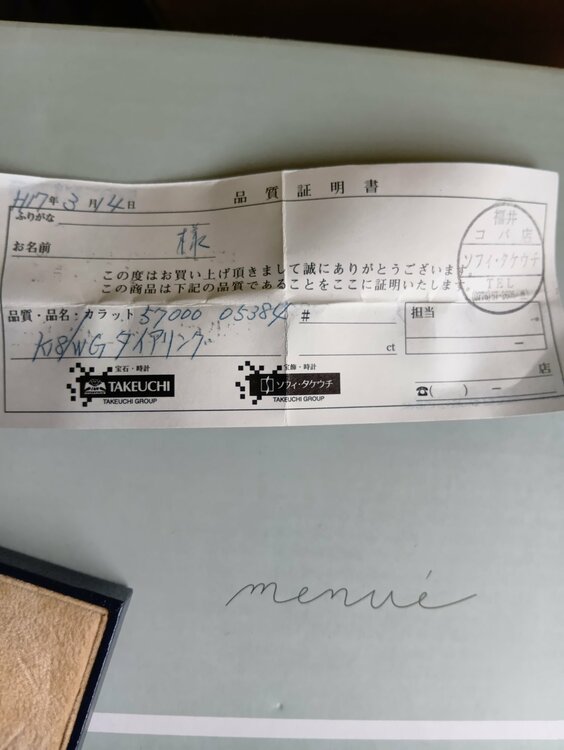 H17年3月14日
品質証明書
ふりがな
お名前 様
この度はお買い上げ頂きまして誠にありがとうございます
この商品は下記の品質であることをここに証明いたします。
福井
コパ店
ソフィ・タケウチ
TEL
品質・品名・カラット 57000 05384
K18/WG ダイアリング
# ct
担当
店
☎( ) ー
宝石・時計
TAKEUCHI
TAKEUCHI GROUP
宝飾・時計
ソフィ・タケウチ
TAKEUCHI GROUP
menué